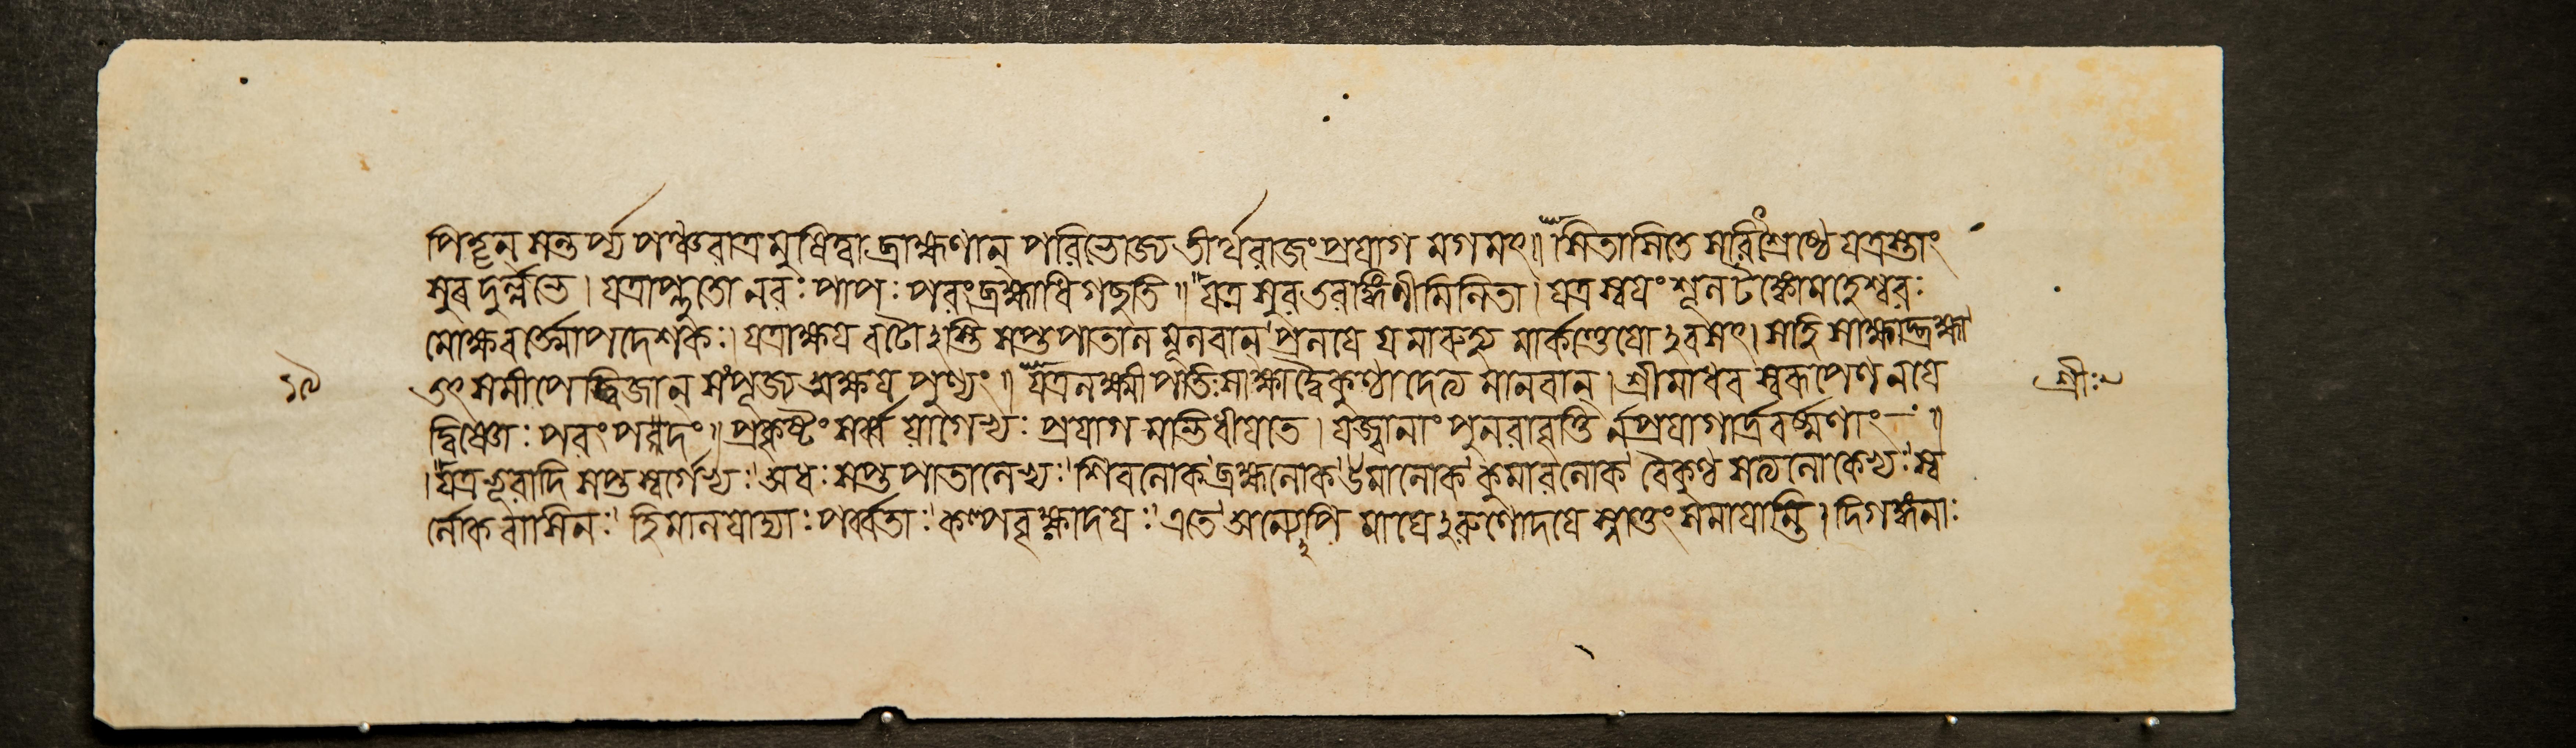 পিতৄন্ সন্তর্প্য পঞ্চরাত্রমুষিত্বা ব্রাহ্মণান্ পরিভোজ্য তীর্থরাজং প্রযাগমগমৎ॥ সিতাসিতে সরিৎশ্রেষ্ঠে যত্রাস্তাং
সুরদুর্ল্লভে। যত্রাপ্লুতো নরঃ পাপঃ পরং ব্রহ্মাধিগছতি॥ যত্র সুরতরঙ্গিণী মিলিতা। যত্র স্বযং শূলটঙ্কো মহেশ্বরঃ
মোক্ষবর্ত্মোপদেশকঃ। যত্রাক্ষযবটোঽস্তি সপ্তপাতালমূলবান্ প্রলযে যমারুহ্য মার্কণ্ডেযোঽবসৎ। স হি সাক্ষাদ্ব্রহ্মা
তৎসমীপে দ্বিজান্ সংপূজ্য অক্ষযপুণ্যং॥ যত্র লক্ষ্মীপতিঃ সাক্ষাদ্বৈকুণ্ঠাদেত্য মানবান্। শ্রীমাধবস্বরূপেণ নযে
দ্বিষ্ণোঃ পরং পদং॥ প্রকৃষ্টং সর্ব্বযাগেভ্যঃ প্রযাগমভিধীযতে। যজ্বানাং পুনরাবৃত্তির্নপ্রযাগার্দ্রবর্ষ্মণাং॥
। যত্র ভূরাদিসপ্তস্বর্গেভ্যঃ অধঃ সপ্তপাতালেভ্যঃ শিবলোক ব্রহ্মলোক উমালোক কুমারলোক বৈকুণ্ঠ সত্যলোকেভ্যঃ স্ব
র্লোকবাসিনঃ হিমালযাদ্যাঃ পর্ব্বতাঃ কল্পবৃক্ষাদযঃ এতে অন্যেঽপি মাঘেঽরুণোদযে স্নাতুং সমাযান্তি। দিগঙ্গনাঃ
১৯
শ্রীঃ